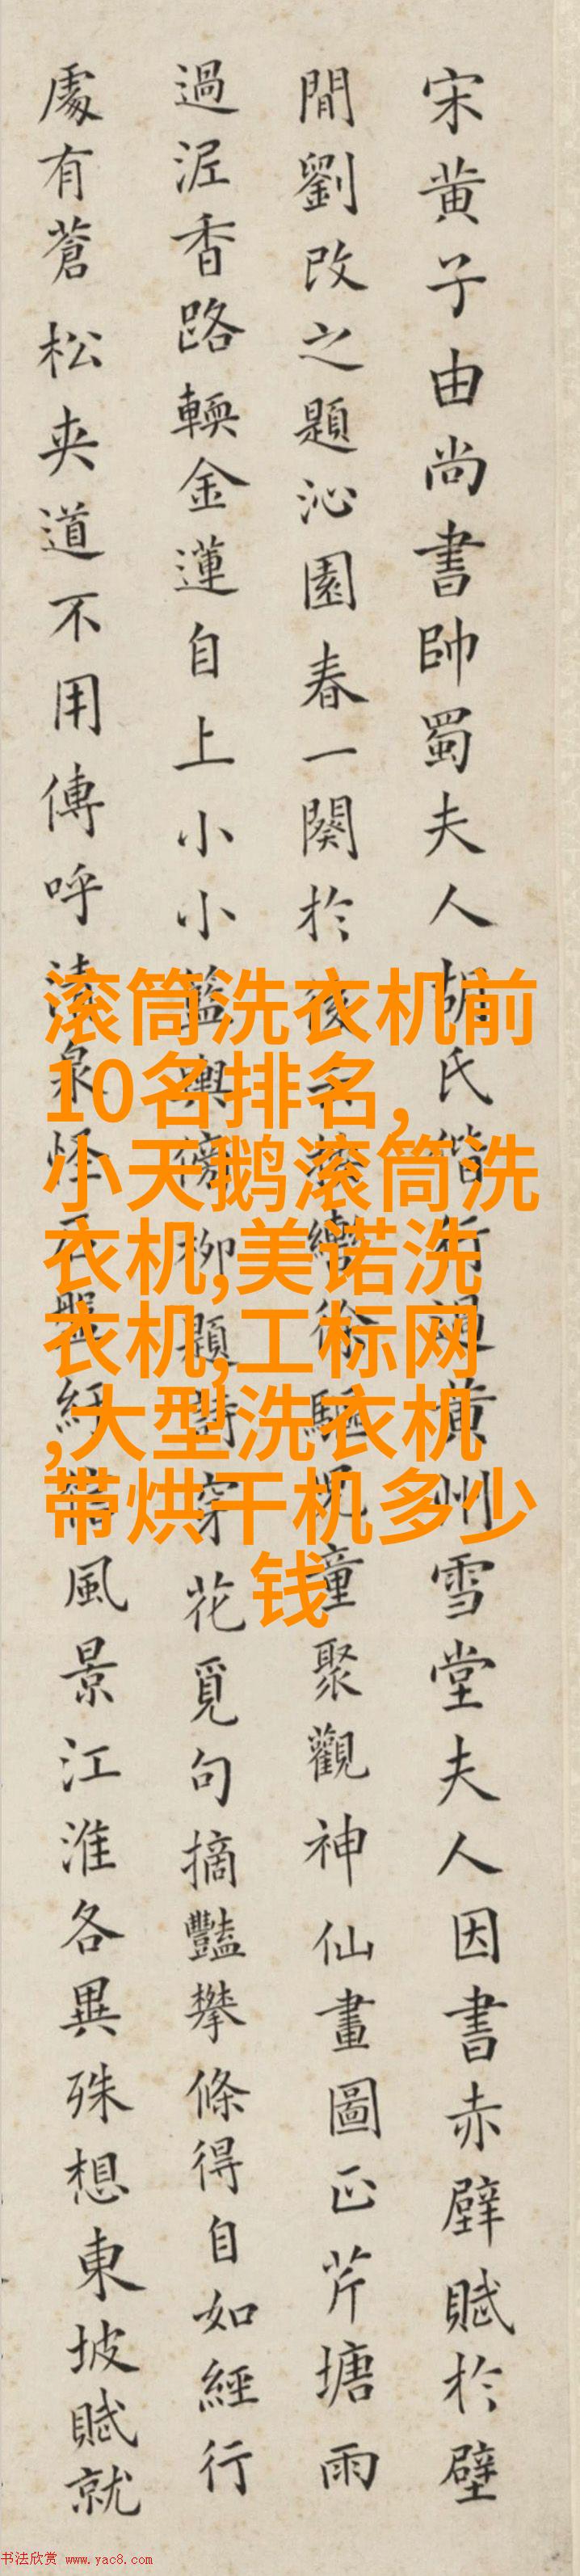 宋黄子由尚書帥蜀夫人胡氏偕行過黄州雪堂夫人因書赤壁賦於壁
間劉改之題沁園春一闋於後云按轡徐驅兒童聚觀神仙畫圖正芹塘雨
過泥香路輭金蓮自上小小籃輿傍柳題詩穿花覓句摘豔攀條得自如經行
處有蒼松夾道不用傳呼清泉怪石盤紆信風景江淮各異殊想東坡賦就
滚筒洗衣机前
10名排名,
小天鹅滚筒洗
衣机,美诺洗
衣机,工标网
,大型洗衣机
带烘干机多少
钱
书法欣赏 www.yac8.com